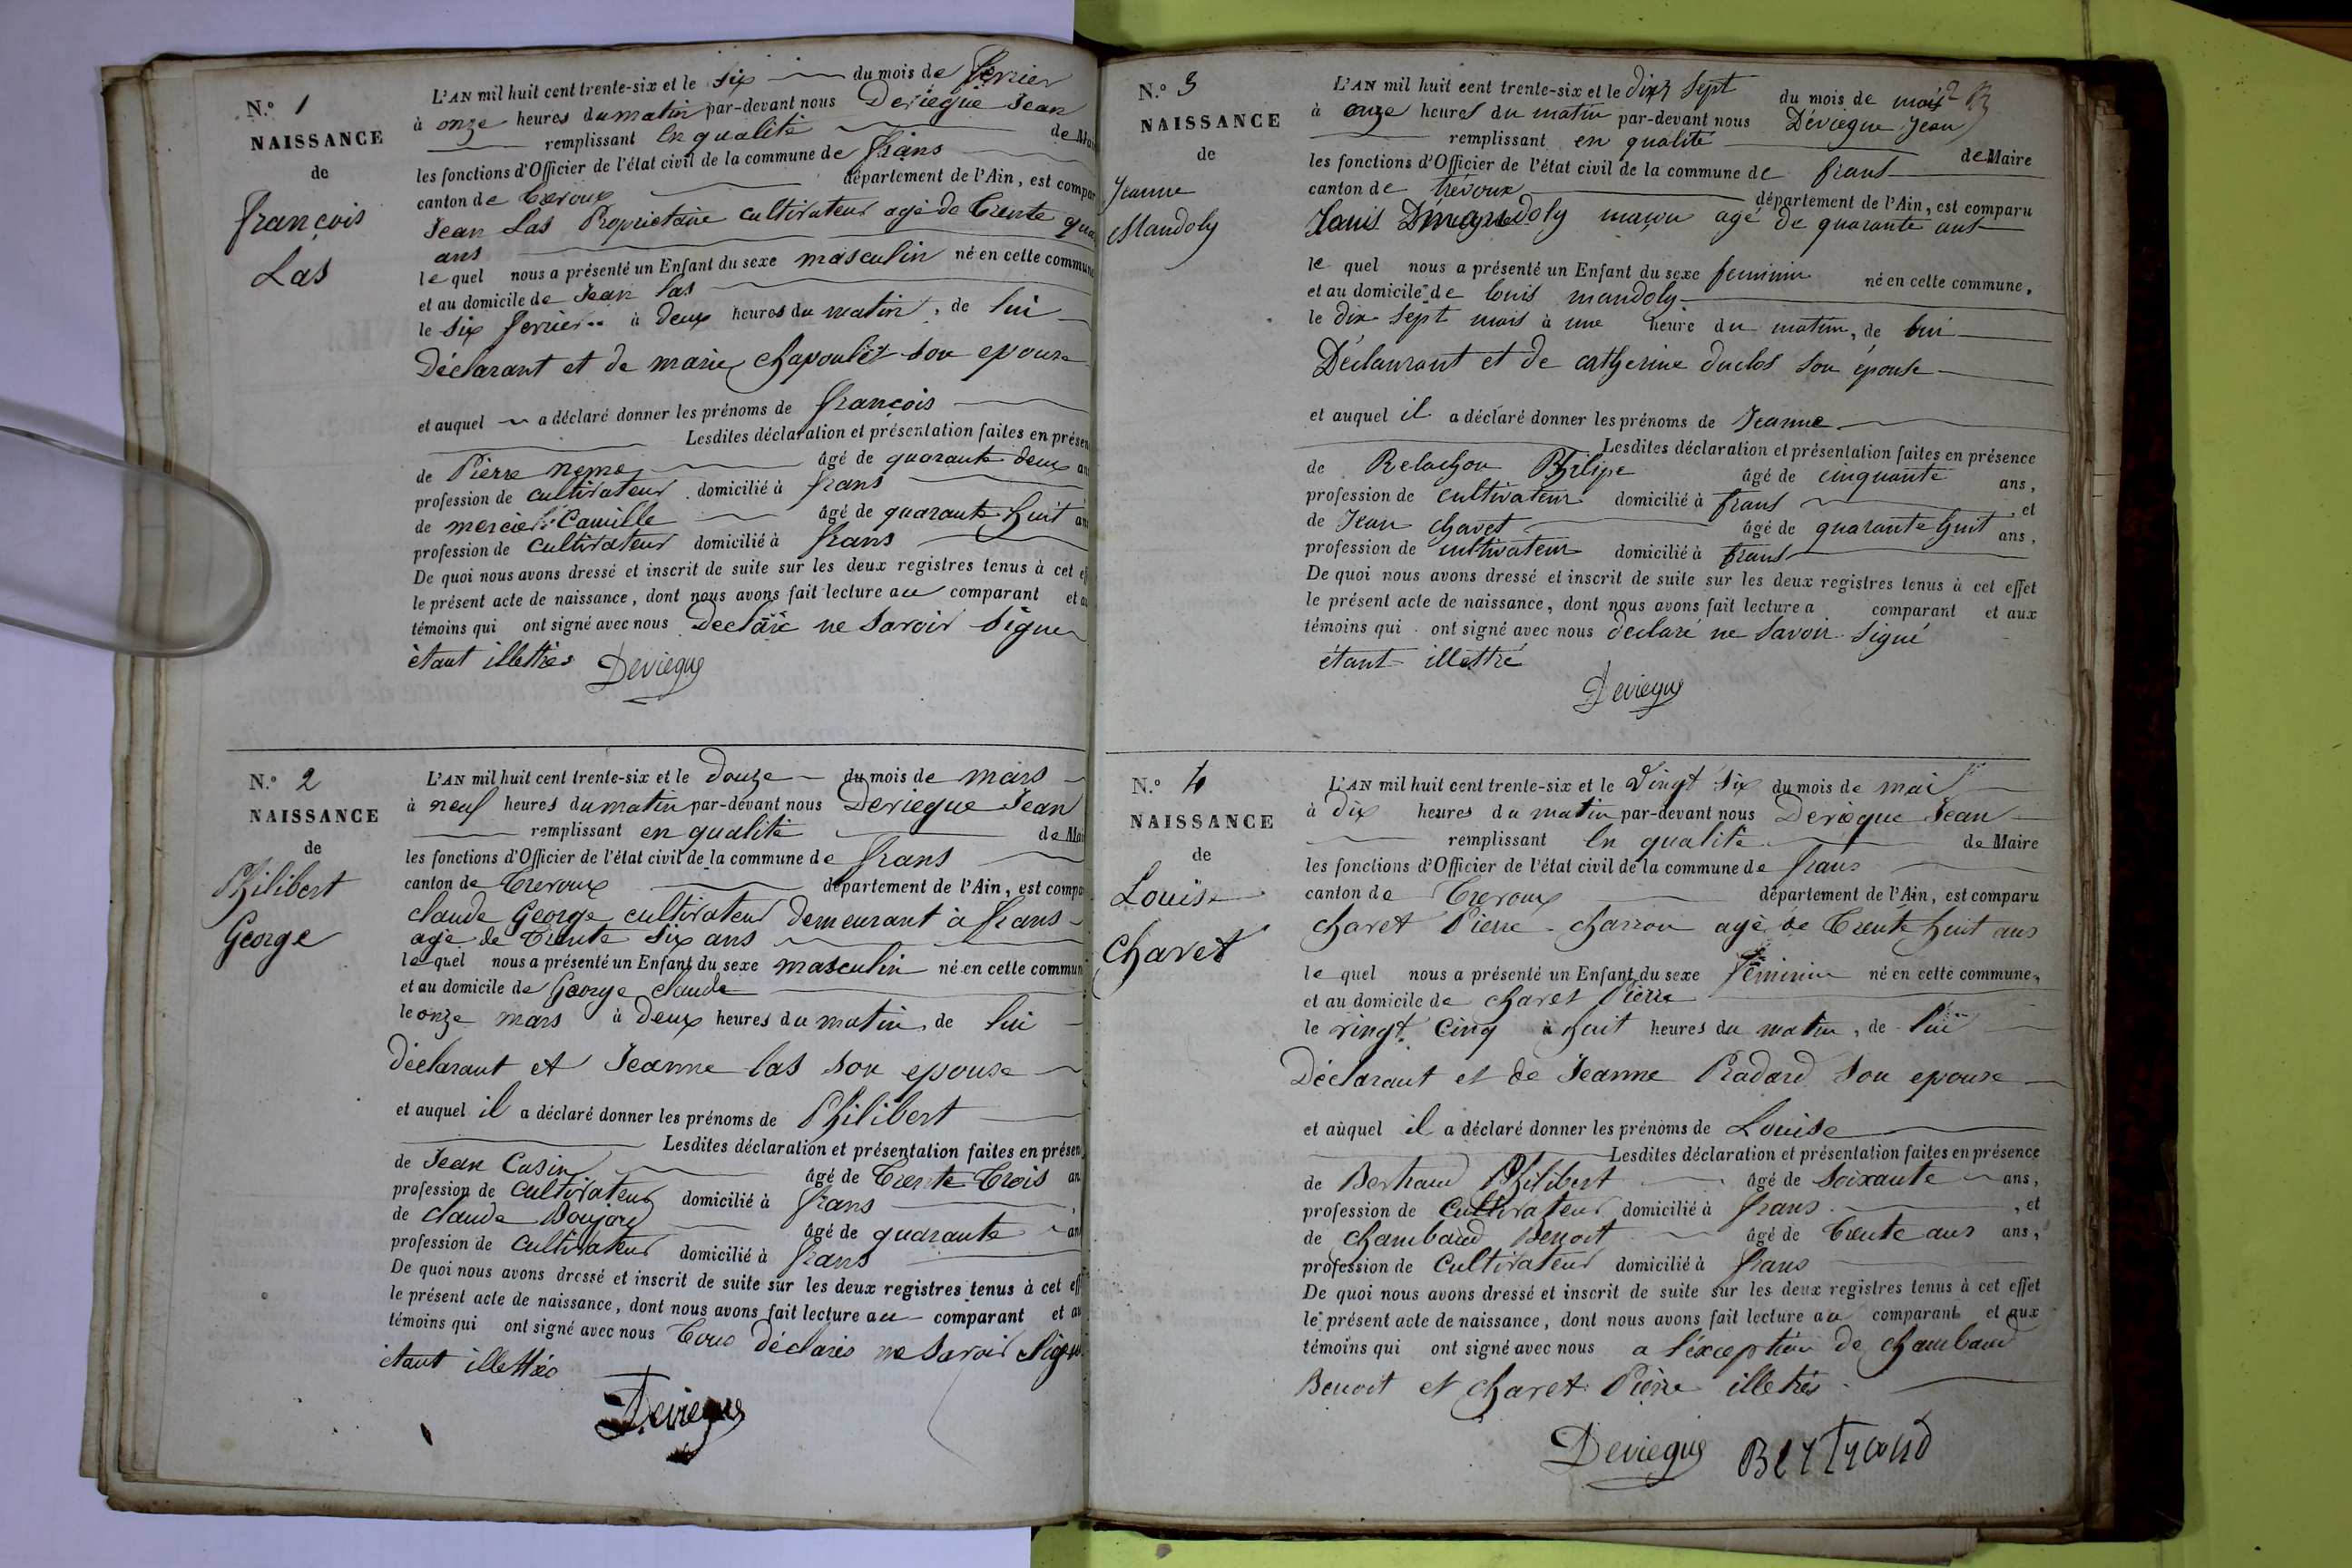 N.º 1
NAISSANCE
de
françois
Las
L'AN mil huit cent trente-six et le six du mois de fevrier
à onze heures du matin par-devant nous Deviegue Jean
remplissant en qualité de Mai
les fonctions d'Officier de l'état civil de la commune de frans
canton de Trevoux département de l'Ain, est compar
Jean Las Proprietaire cultivateur agé de Trente qua
ans
le quel nous a présenté un Enfant du sexe masculin né en cette commune
et au domicile de Jean las
le six fevrier à deux heures du matin, de lui
Déclarant et de marie son epouse
et auquel a déclaré donner les prénoms de françois
Lesdites déclaration et présentation faites en présen
de Pierre âgé de quarante deux an
profession de cultivateur domicilié à frans
de mercier Camille âgé de quarante huit an
profession de cultivateur domicilié à frans
De quoi nous avons dressé et inscrit de suite sur les deux registres tenus à cet eff
le présent acte de naissance, dont nous avons fait lecture au comparant et au
témoins qui ont signé avec nous Declaré ne Savoir Signer
étant illettrés Deviegue
N.º 2
NAISSANCE
de
Philibert
George
L'AN mil huit cent trente-six et le douze du mois de mars
à neuf heures du matin par-devant nous Deviegue Jean
remplissant en qualité de Mai
les fonctions d'Officier de l'état civil de la commune de frans
canton de Trevoux département de l'Ain, est compa
claude George cultivateur demeurant à frans
agé de Trente Six ans
le quel nous a présenté un Enfant du sexe masculin né en cette commun
et au domicile de George claude
le onze mars à deux heures du matin, de lui
déclarant et Jeanne las son epouse
et auquel il a déclaré donner les prénoms de Philibert
Lesdites déclaration et présentation faites en présen
de Jean Cusin âgé de Trente Trois an
profession de cultivateur domicilié à frans
de claude Boujard âgé de quarante an
profession de cultivateur domicilié à frans
De quoi nous avons dressé et inscrit de suite sur les deux registres tenus à cet eff
le présent acte de naissance, dont nous avons fait lecture au comparant et au
témoins qui ont signé avec nous Tous déclarés ne Savoir Signer
étant illettrés
Deviegue
N.º 3
NAISSANCE
de
Jeanne
Mandoly
L'AN mil huit cent trente-six et le dix Sept du mois de mars
à onze heures du matin par-devant nous Déviegue Jean
remplissant en qualité de Maire
les fonctions d'Officier de l'état civil de la commune de frans
canton de trévoux département de l'Ain, est comparu
Louis mandoly maçon agé de quarante ans
le quel nous a présenté un Enfant du sexe feminin né en cette commune,
et au domicile de louis mandoly
le dix Sept mars à une heure du matin, de lui
Déclaurant et de catherine duclos son épouse
et auquel il a déclaré donner les prénoms de Jeanne
Lesdites déclaration et présentation faites en présence
de Relachon Philipe âgé de cinquante ans,
profession de cultivateur domicilié à frans, et
de Jean chavet âgé de quarante huit ans,
profession de cultivateur domicilié à frans
De quoi nous avons dressé et inscrit de suite sur les deux registres tenus à cet effet
le présent acte de naissance, dont nous avons fait lecture a comparant et aux
témoins qui ont signé avec nous declaré ne savoir signé
étant illettré
Deviegue
N.º 4
NAISSANCE
de
Louise
Chavet
L'AN mil huit cent trente-six et le Vingt Six du mois de mai
à dix heures du matin par-devant nous Deviegue Jean
remplissant en qualité de Maire
les fonctions d'Officier de l'état civil de la commune de frans
canton de Trevoux département de l'Ain, est comparu
chavet Pierre charron agé de Trente huit ans
le quel nous a présenté un Enfant du sexe féminin né en cette commune,
et au domicile de chavet Pierre
le vingt Cinq à huit heures du matin, de lui
Déclarant et de Jeanne Radard son epouse
et auquel il a déclaré donner les prénoms de Louise
Lesdites déclaration et présentation faites en présence
de Bertrand Philibert âgé de Soixante ans,
profession de Cultivateur domicilié à frans, et
de chambaud Benoit âgé de Trente ans ans,
profession de Cultivateur domicilié à frans
De quoi nous avons dressé et inscrit de suite sur les deux registres tenus à cet effet
le présent acte de naissance, dont nous avons fait lecture au comparant et aux
témoins qui ont signé avec nous a l'éxception de chambaud
Benoit et chavet Pierre illetrés
Deviegue Bertrand